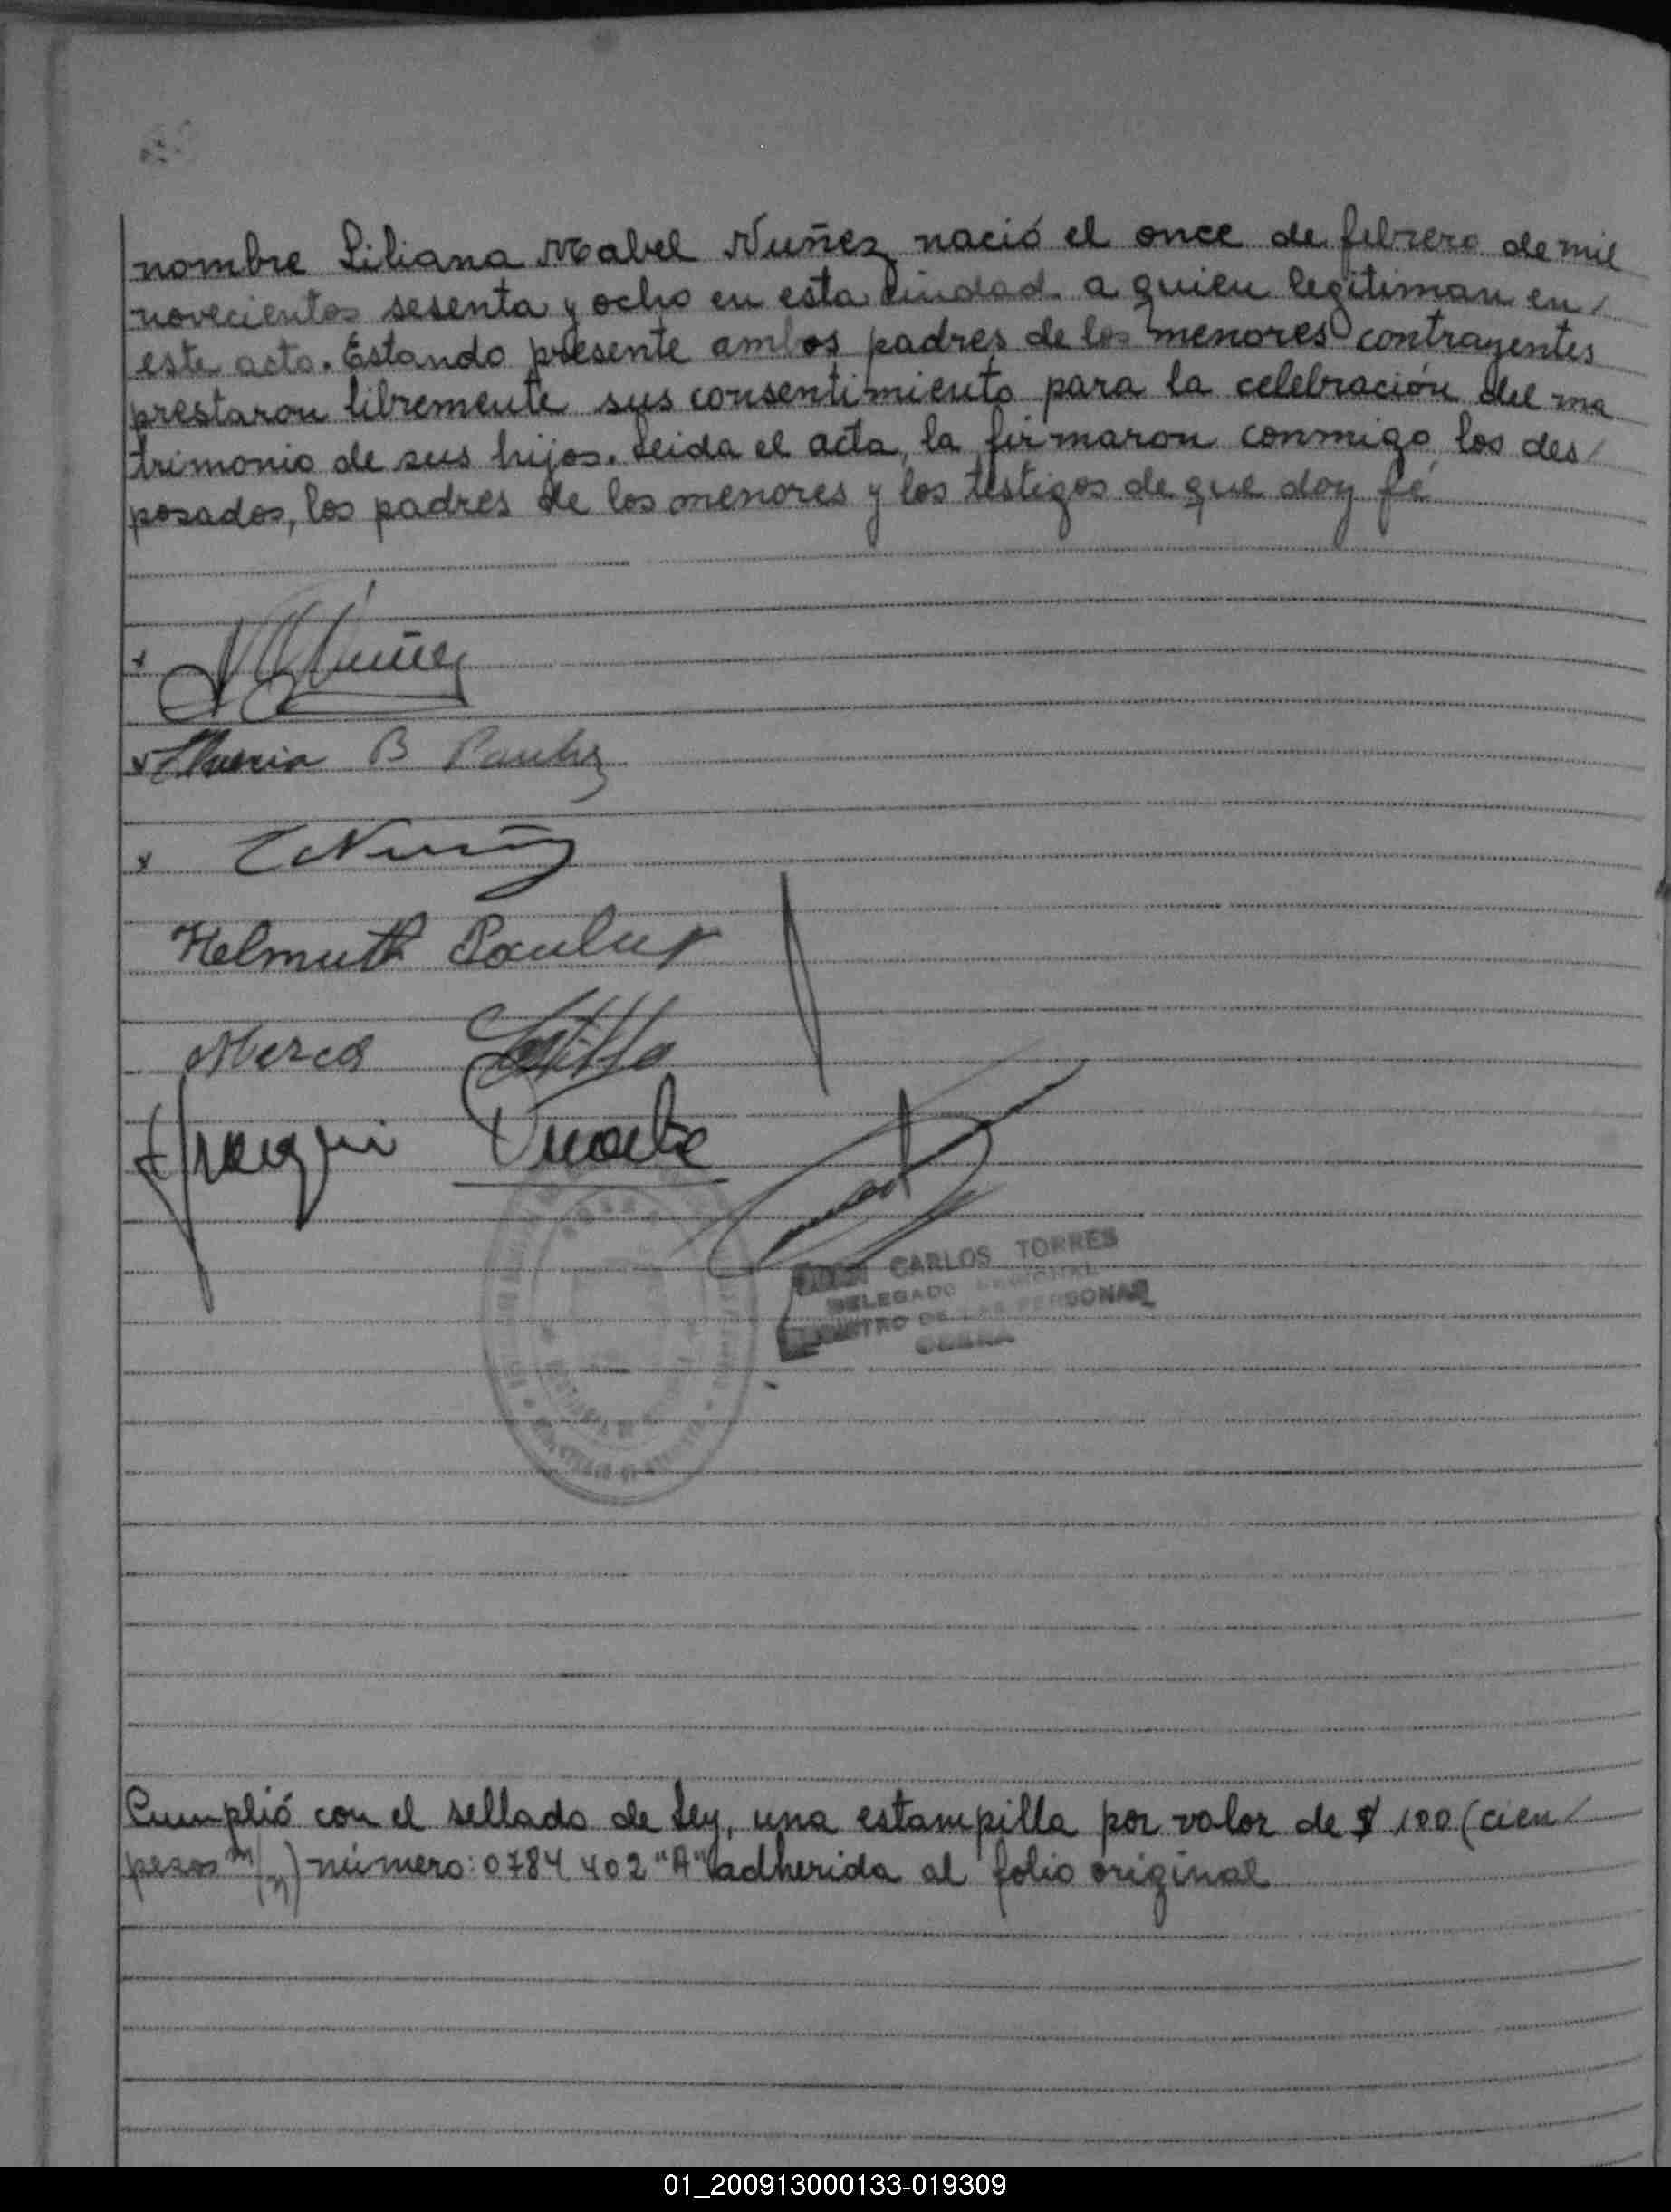 nombre Liliana Mabel Nuñez nació el once de febrero de mil
novecientos sesenta y ocho en esta ciudad a quien legitiman en/
este acto. Estando presente ambos padres de los menores contrayentes
prestaron libremente sus consentimiento para la celebración del ma
trimonio de sus hijos. Leida el acta, la firmaron conmigo, los des/
posados, los padres de los menores y los testigos de que doy fé
x Nuñez
x B
x Nuñez
Helmuth Paulus
CARLOS TORRES
DELEGADO REGIONAL
DE LAS PERSONAS
Cumplió con el sellado de Ley, una estampilla por valor de $ 100 (cien/
pesos m/n) número: 0784402 "A" adherida al folio original
01_200913000133-019309